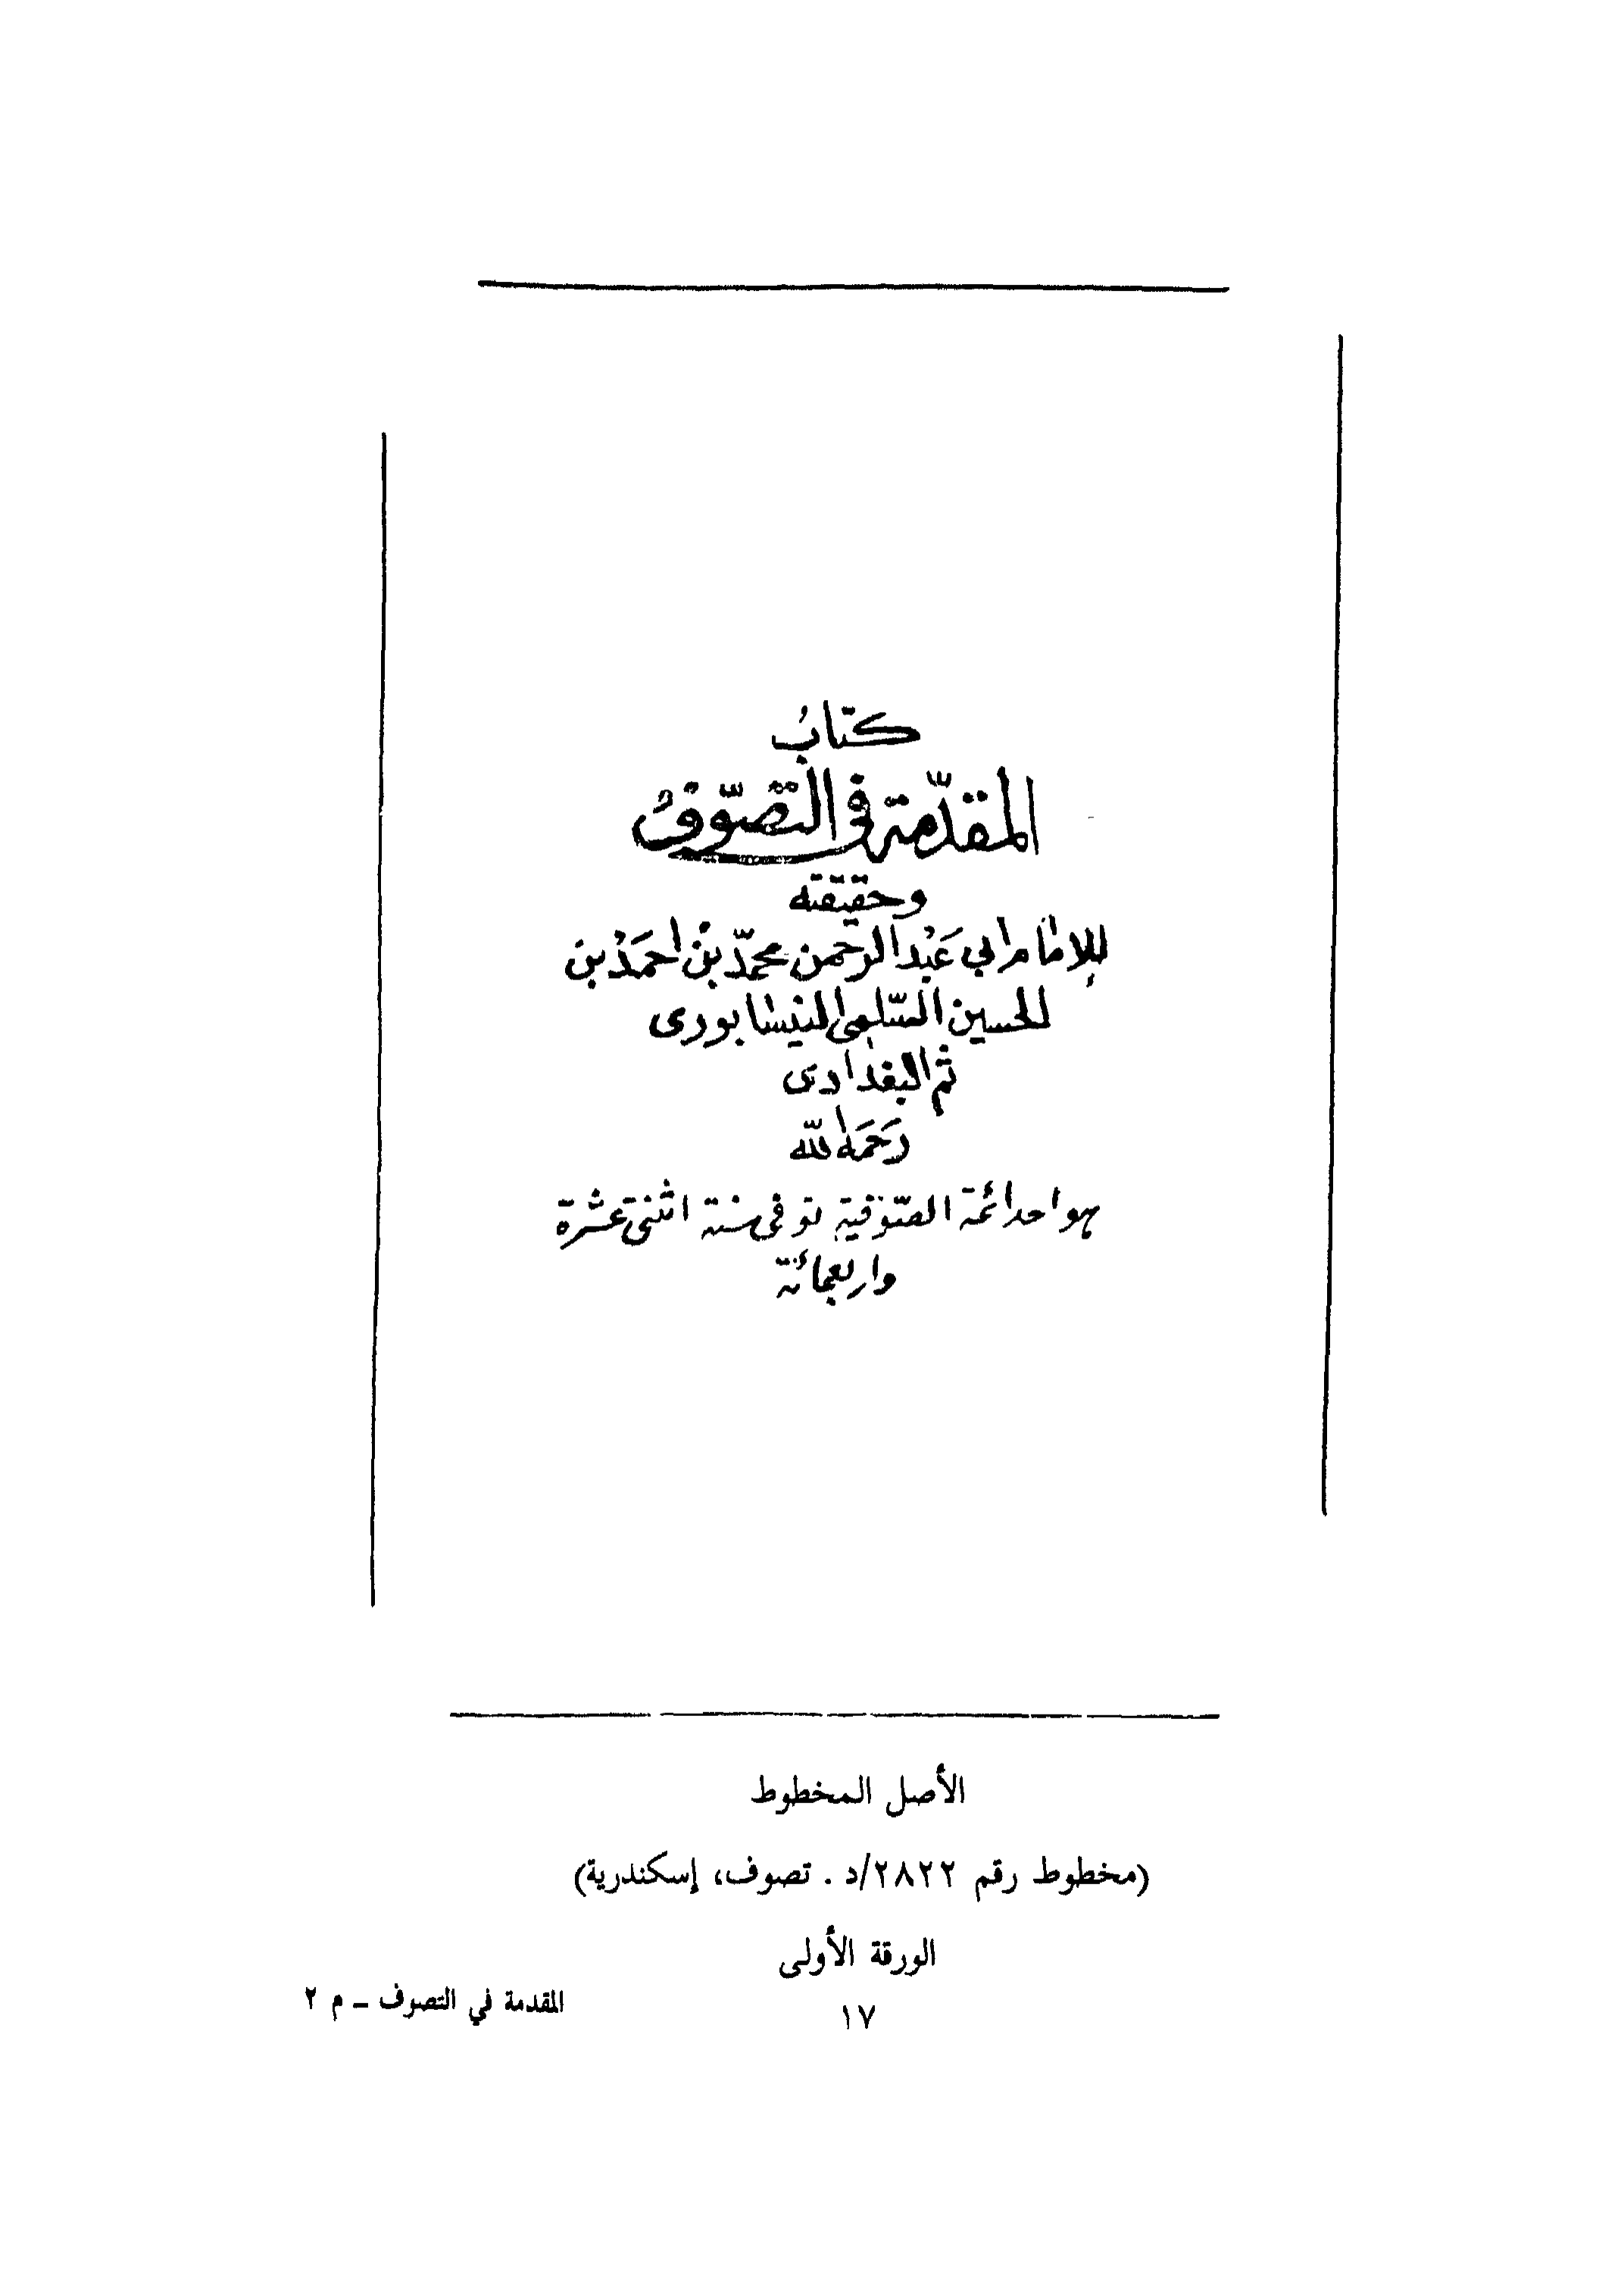 كتابُ
المقدّمة في التصّوفُ
وحقيقته
للإمام ابي عَبْد الرحمن محمّد بْن احمَدْ بن
الحسين السّلمي النيسابورى
ثم البغدادى
رَحمَه الله
هو احد ائمة الصّوفية توفى سنة اثنتى عشرة
واربعمائة
الأصل المخطوط
(مخطوط رقم ٢٨٢٢/د . تصوف، إسكندرية)
الورقة الأولى
المقدمة في التصوف ـ م ٢
١٧